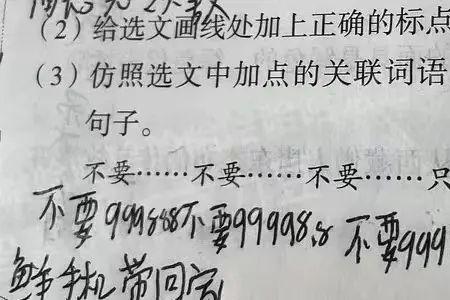 （2）给选文画线处加上正确的标点
（3）仿照选文中加点的关联词语
句子。
不要……不要……不要……只
不要999888不要99998.8不要999
鲜手机带回家